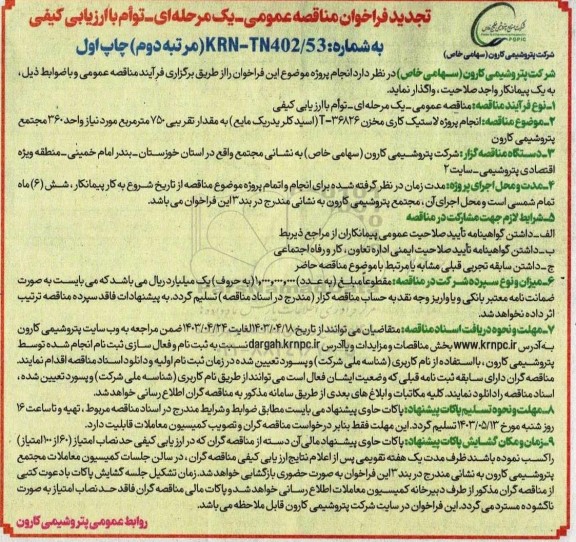 تجدید فراخوان مناقصه عمومی_یک مرحله ای_توأم با ارزیابی کیفی
به شماره: KRN-TN402/53(مرتبه دوم) چاپ اول
PGPIC
شرکت پتروشیمی کارون (سهامی خاص)
شرکت پتروشیمی کارون (سهامی خاص) در نظر دارد انجام پروژه موضوع این فراخوان را از طریق برگزاری فرآیند مناقصه عمومی و با ضوابط ذیل،
به یک پیمانکار واجد صلاحیت، واگذار نماید.
۱_نوع فرآیند مناقصه: مناقصه عمومی_یک مرحله ای_توأم با ارزیابی کیفی
۲_موضوع مناقصه: انجام پروژه لاستیک کاری مخزن T-۳۶۸۲۶ (اسید کلریدریک مایع) به مقدار تقریبی ۷۵۰ مترمربع مورد نیاز واحد ۳۶۰ مجتمع
پتروشیمی کارون
۳_دستگاه مناقصه گزار: شرکت پتروشیمی کارون (سهامی خاص) به نشانی مجتمع واقع در استان خوزستان_بندر امام خمینی_منطقه ویژه
اقتصادی پتروشیمی_سایت ۲
۴_مدت و محل اجرای پروژه: مدت زمان در نظر گرفته شده برای انجام و اتمام پروژه موضوع مناقصه از تاریخ شروع به کار پیمانکار، شش (۶) ماه
تمام شمسی است و محل اجرای آن، مجتمع پتروشیمی کارون به نشانی مندرج در بند ۳ این فراخوان می باشد.
۵_شرایط لازم جهت مشارکت در مناقصه
الف_داشتن گواهینامه تأیید صلاحیت عمومی پیمانکاران از مراجع ذیربط
ب_داشتن گواهینامه تأیید صلاحیت ایمنی اداره تعاون، کار و رفاه اجتماعی
ج_داشتن سابقه تجربی قبلی مشابه یا مرتبط با موضوع مناقصه حاضر
۶_میزان و نوع سپرده شرکت در مناقصه: مقطوعا مبلغ (به عدد) ۱،۰۰۰،۰۰۰،۰۰۰ (به حروف) یک میلیارد ریال می باشد که می بایست به صورت
ضمانت نامه معتبر بانکی و یا واریز وجه نقد به حساب مناقصه گزار (مندرج در اسناد مناقصه) تسلیم گردد. به پیشنهادات فاقد سپرده مناقصه ترتیب
اثر داده نخواهد شد.
۷_مهلت و نحوه دریافت اسناد مناقصه: متقاضیان می توانند از تاریخ ۱۴۰۳/۰۴/۱۸ لغایت ۱۴۰۳/۰۴/۲۴ ضمن مراجعه به وب سایت پتروشیمی کارون
به آدرس www.krnpc.ir بخش مناقصات و مزایدات و یا آدرس dargah.krnpc.ir نسبت به ثبت نام و فعال سازی ثبت نام انجام شده توسط
پتروشیمی کارون، با استفاده از نام کاربری (شناسه ملی شرکت) و پسورد تعیین شده در زمان ثبت نام اولیه و دانلود اسناد مناقصه اقدام نمایند.
مناقصه گران دارای سابقه ثبت نامه قبلی که وضعیت ایشان فعال است می توانند از طریق نام کاربری (شناسه ملی شرکت) و پسورد تعیین شده،
اسناد مناقصه را دانلود نمایند. کلیه مکاتبات و ابلاغ های بعدی از طریق سامانه مذکور به مناقصه گران اطلاع رسانی خواهد شد.
۸_مهلت و نحوه تسلیم پاکات پیشنهاد: پاکات حاوی پیشنهاد می بایست مطابق ضوابط و شرایط مندرج در اسناد مناقصه مربوط، تهیه و تا ساعت ۱۶
روز شنبه مورخ ۱۴۰۳/۰۵/۱۳ تسلیم گردد. این مهلت فقط بنابر درخواست مناقصه گران و تصویب کمیسیون معاملات قابلیت دارد.
۹_زمان و مکان گشایش پاکات پیشنهاد: پاکات حاوی پیشنهاد مالی آن دسته از مناقصه گران که در ارزیابی کیفی حد نصاب امتیاز (۶۰ از ۱۰۰ امتیاز)
را کسب نموده باشند ظرف مدت یک هفته تقویمی پس از اعلام نتایج ارزیابی کیفی مناقصه گران، در سالن جلسات کمیسیون معاملات مجتمع
پتروشیمی کارون به نشانی مندرج در بند ۳ این فراخوان به صورت حضوری بازگشایی خواهد شد. زمان تشکیل جلسه گشایش پاکات با دعوت کتبی
از مناقصه گران مذکور از طرف دبیرخانه کمیسیون معاملات اطلاع رسانی خواهد شد و پاکات مالی مناقصه گران فاقد حد نصاب امتیاز به صورت
ناگشوده مسترد می گردد. این فراخوان در سایت شرکت پتروشیمی کارون قابل ملاحظه می باشد.
روابط عمومی پتروشیمی کارون